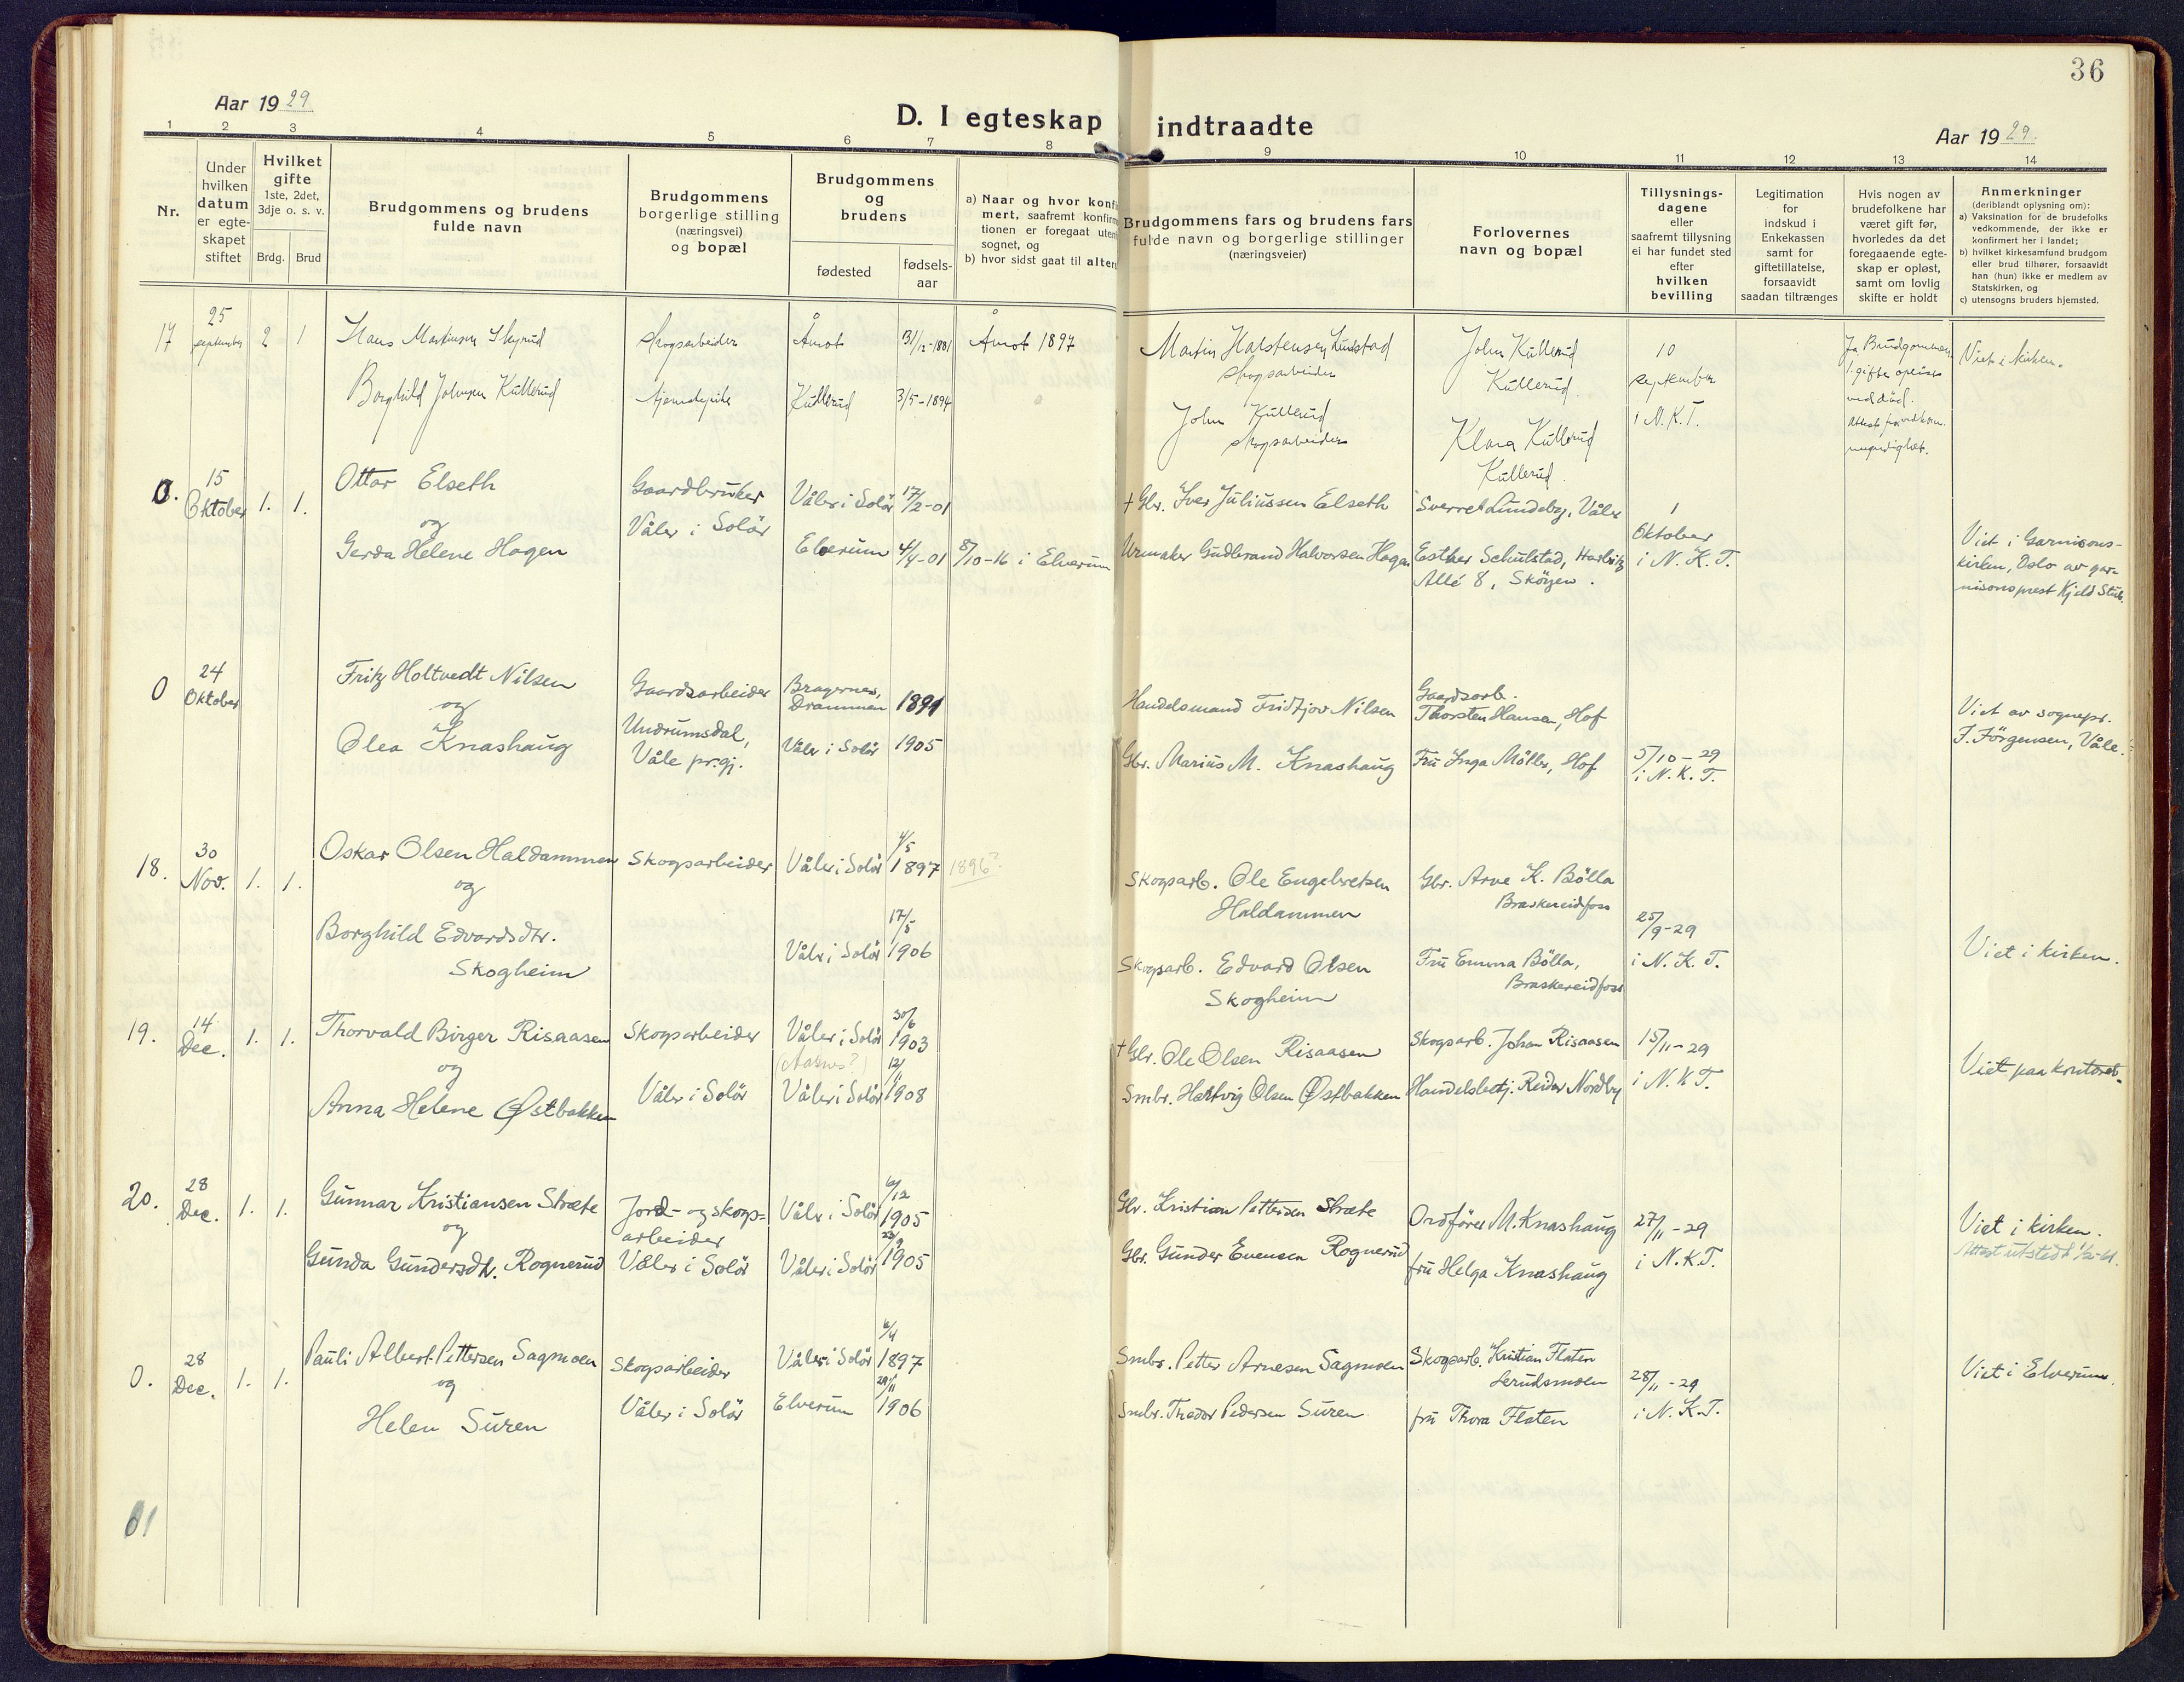 36
Aar 1929
D. I egteskap indtraadte
Aar 1929
1 2 3 4 5 6 7 8 9 10 11 12 13 14
Nr.
Under
hvilken
datum
er egte-
skapet
stiftet
Hvilket
gifte
1ste, 2det,
3dje o. s. v.
Brdg. Brud
Brudgommens og brudens
fulde navn
Brudgommens
borgerlige stilling
(næringsvei)
og bopæl
Brudgommens
og
brudens
fødested
fødsels-
aar
a) Naar og hvor konfi
mert, saafremt konfirm
tionen er foregaat uten
sognet, og
b) hvor sidst gaat til alter
Brudgommens fars og brudens fars
fulde navn og borgerlige stillinger
(næringsveier)
Forlovernes
navn og bopæl
Tillysnings-
dagene
eller
saafremt tillysning
ei har fundet sted
efter
hvilken
bevilling
Legitimation
for
indskud i
Enkekassen
samt for
giftetillatelse,
forsaavidt
saadan tiltrænges
Hvis nogen av
brudefolkene har
været gift før,
hvorledes da det
foregaaende egte-
skap er opløst,
samt om lovlig
skifte er holdt
Anmerkninger
(deriblandt oplysning om):
a) Vaksination for de brudefolks
vedkommende, der ikke er
konfirmert her i landet;
b) hvilket kirkesamfund brudgom
eller brud tilhører, forsaavidt
han (hun) ikke er medlem av
Statskirken, og
c) utensogns bruders hjemsted.
17
25
september
2 1
Hans Martinsen
Skogsarbeider
Åmot
31/12-1881
Åmot 1897
Martin Halstensen
skogsarbeider
John Kullerud
Kullerud
10
september
i N.K.T.
Viet i kirken.
Borghild Johnsen Kullerud
tjenestepike
Kullerud
3/5-1894
John Kullerud
skogsarbeider
Klara Kullerud
Kullerud
Ja, Brudgommen
ved död.
0.
15
Oktober
1. 1.
Ottar Elseth
og
Gerda Helene Hagen
Gaardbruker
Våler i Solör
Våler i Solör
17/2-01
Elverum
4/4-01
8/10-16 i Elverum
† Gbr. Iver Juliussen Elseth
Urmaker Gudbrand Halvorsen Hagen
Sverre Lundeby, Våler
Esther Schulstad, Harbitz
Allé 8, Sköyen.
1
Oktober
i N. K. T.
Viet i Garnisons-
kirken, Oslo av gar-
nisonsprest Kjeld Stub.
0
24
Oktober
Fritz Holtvedt Nilsen
og
Olea Knashaug
Gaardsarbeider
Undrumsdal,
Våle pr.gj.
Bragernes,
Drammen
1891
Våler i Solör
1905
Handelsmand Fridtjov Nilsen
Gbr. Marius M. Knashaug
Gaardsarb.
Thorsten Hansen, Hof
Fru Inga Möller, Hof
5/10-29
i N. K. T.
Viet av sognepr.
F. Jörgensen, Våle.
18.
30
Nov.
1. 1.
Oskar Olsen Haldammen
og
Borghild Edvardsdtr.
Skogheim
Skogsarbeider
Våler i Solör
4/5
1897
1896?
Våler i Solör
17/5
1906
Skogsarb. Ole Engebretsen
Haldammen
Skogsarb. Edvard Olsen
Skogheim
Gbr. Arve K. Bölla
Braskereidfoss
Fru Emma Bölla,
Braskereidfoss
25/9-29
i N. K. T.
Viet i kirken.
19.
14
Dec.
1. 1.
Thorvald Birger Risaasen
og
Anna Helene Østbakken
Skogsarbeider
Våler i Solör
Våler i Solör
30/6
1903
(Aasnes?)
Våler i Solör
12/11
1908
† Gbr. Ole Olsen Risaasen
Smbr. Hartvig Olsen Østbakken
Skogsarb. Johan Risaasen
Handelsbetj. Reidar Nordby
15/11-29
i N. K T.
Viet paa kontoret.
20.
28
Dec.
1. 1.
Gunnar Kristiansen Stræte
og
Gunda Gundersdtr. Rognerud
Jord- og skogs-
arbeider
Våler i Solör
Våler i Solör
6/12
1905
Våler i Solör
23/9
1905
Gbr. Kristian Pettersen Stræte
Gbr. Gunder Evensen Rognerud
Ordförer M. Knashaug
fru Helga Knashaug
27/11-29
i N.K.T.
Viet i kirken.
Attest utstedt
0.
28
Dec.
1. 1.
Pauli Albert Pettersen Sagmoen
og
Helen Suren
Skogsarbeider
Våler i Solör
Våler i Solör
6/4
1897
Elverum
29/11
1906
Smbr. Petter Arnesen Sagmoen
Smbr. Theodor Pedersen Suren
Skogsarb. Kristian Flaten
Lerudsmoen
fru Thora Flaten
28/11-29
i N. K.T.
Viet i Elverum.